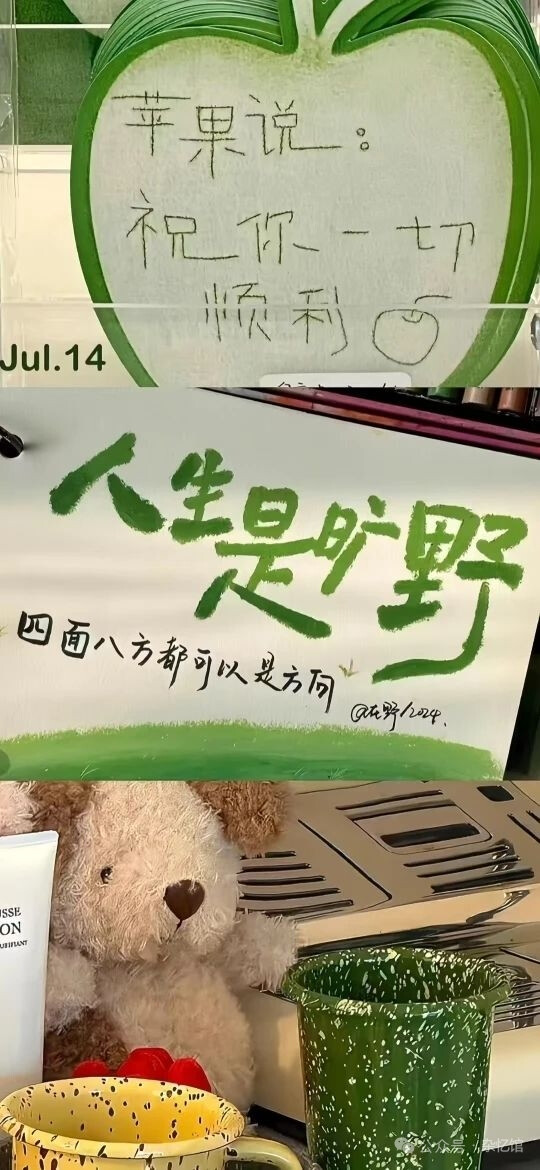 苹果说：
祝你一切
顺利
Jul.14
人生是旷野
四面八方都可以是方向
@在野/2024.
USSE
ON
PURIFIANT
公众号·杂忆馆